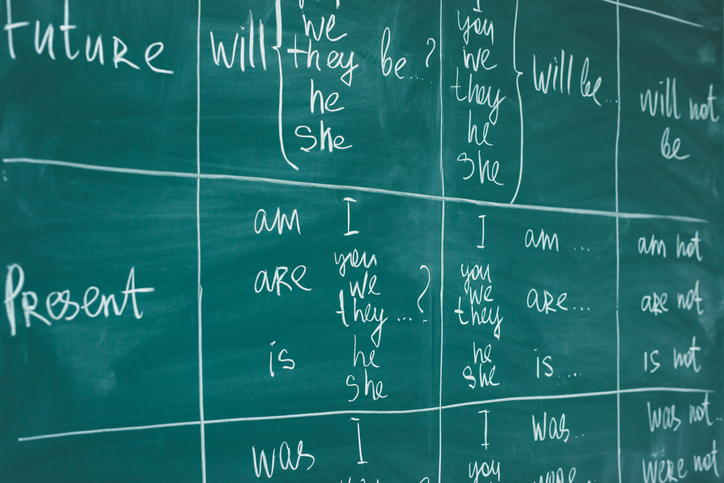 Future
will
you
we
they
he
she
be...?
I
you
we
they
he
she
will be...
will not
be
Present
am I
are
you
we
they ...?
is
he
she
I am ...
you
we
they
are...
he
she
is ...
am not
are not
is not
was I
I was..
you
was not..
were not